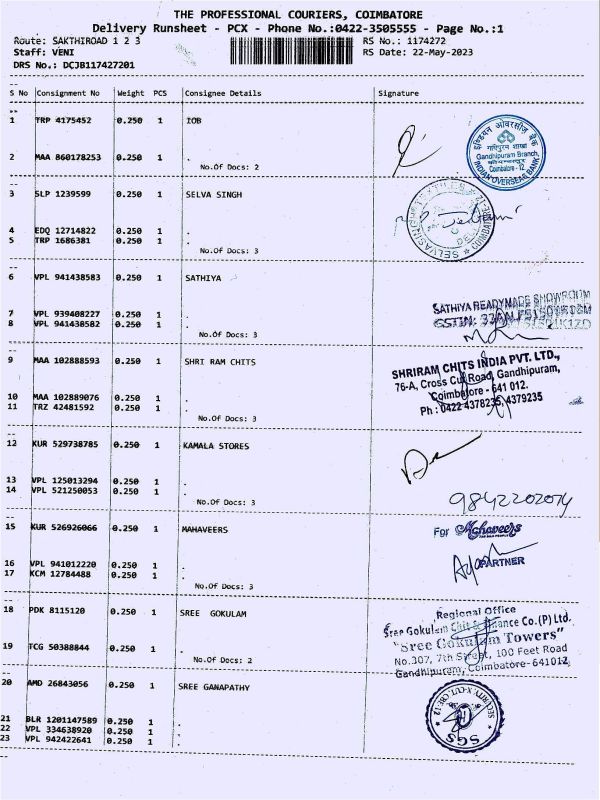 THE PROFESSIONAL COURIERS, COIMBATORE
Delivery Runsheet - PCX - Phone No.:0422-3505555 - Page No.:1
Route: SAKTHIROAD 1 2 3
RS No.: 1174272
Staff: VENI
RS Date: 22-May-2023
DRS No.: DCJB117427201
S No Consignment No Weight PCS Consignee Details Signature
1 TRP 4175452 0.250 1 IOB
इण्डियन ओवरसीज़ बैंक
Gandhipuram Branch,
Coimbatore - 12
INDIAN OVERSEAS BANK
2 MAA 860178253 0.250 1 .
No.Of Docs: 2
3 SLP 1239599 0.250 1 SELVA SINGH
4 EDQ 12714822 0.250 1 .
5 TRP 1686381 0.250 1 .
No.Of Docs: 3
6 VPL 941438583 0.250 1 SATHIYA
SATHIYA READYMADE SHOWROOM
7 VPL 939408227 0.250 1 .
8 VPL 941438582 0.250 1 .
No.Of Docs: 3
9 MAA 102888593 0.250 1 SHRI RAM CHITS
SHRIRAM CHITS INDIA PVT. LTD.,
76-A, Cross Cut Road, Gandhipuram,
Coimbatore - 641 012.
Ph : 0422 4378235, 4379235
10 MAA 102889076 0.250 1 .
11 TRZ 42481592 0.250 1 .
No.Of Docs: 3
12 KUR 529738785 0.250 1 KAMALA STORES
13 VPL 125013294 0.250 1 .
14 VPL 521250053 0.250 1 .
No.Of Docs: 3
9842202074
15 KUR 526926066 0.250 1 MAHAVEERS
For Mahaveers
PARTNER
16 VPL 941012220 0.250 1 .
17 KCM 12784488 0.250 1 .
No.Of Docs: 3
18 PDK 8115120 0.250 1 SREE GOKULAM
Regional Office
Sree Gokulam Chit & Finance Co.(P) Ltd.
"Sree Gokulam Towers"
No.307, 7th Street, 100 Feet Road
Gandhipuram, Coimbatore-641012
19 TCG 50388844 0.250 1 .
No.Of Docs: 2
20 AMD 26843056 0.250 1 SREE GANAPATHY
SGS
21 BLR 1201147589 0.250 1 .
22 VPL 334638920 0.250 1 .
23 VPL 942422641 0.250 1 .